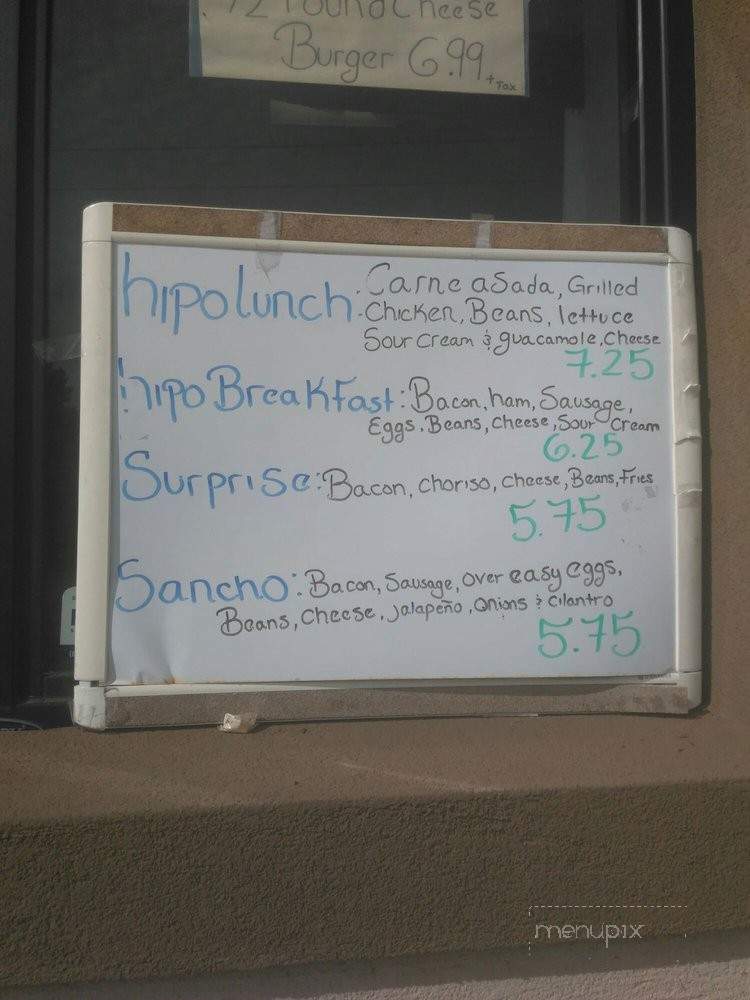 1/2 Pound Cheese
Burger 6.99 + Tax
hipolunch: Carne asada, Grilled
Chicken, Beans, lettuce
Sour cream & guacamole, Cheese
7.25
hipo Breakfast: Bacon, ham, Sausage,
Eggs, Beans, cheese, Sour Cream
6.25
Surprise: Bacon, choriso, cheese, Beans, Fries
5.75
Sancho: Bacon, Sausage, over easy eggs,
Beans, Cheese, jalapeño, onions & cilantro
5.75
menupix